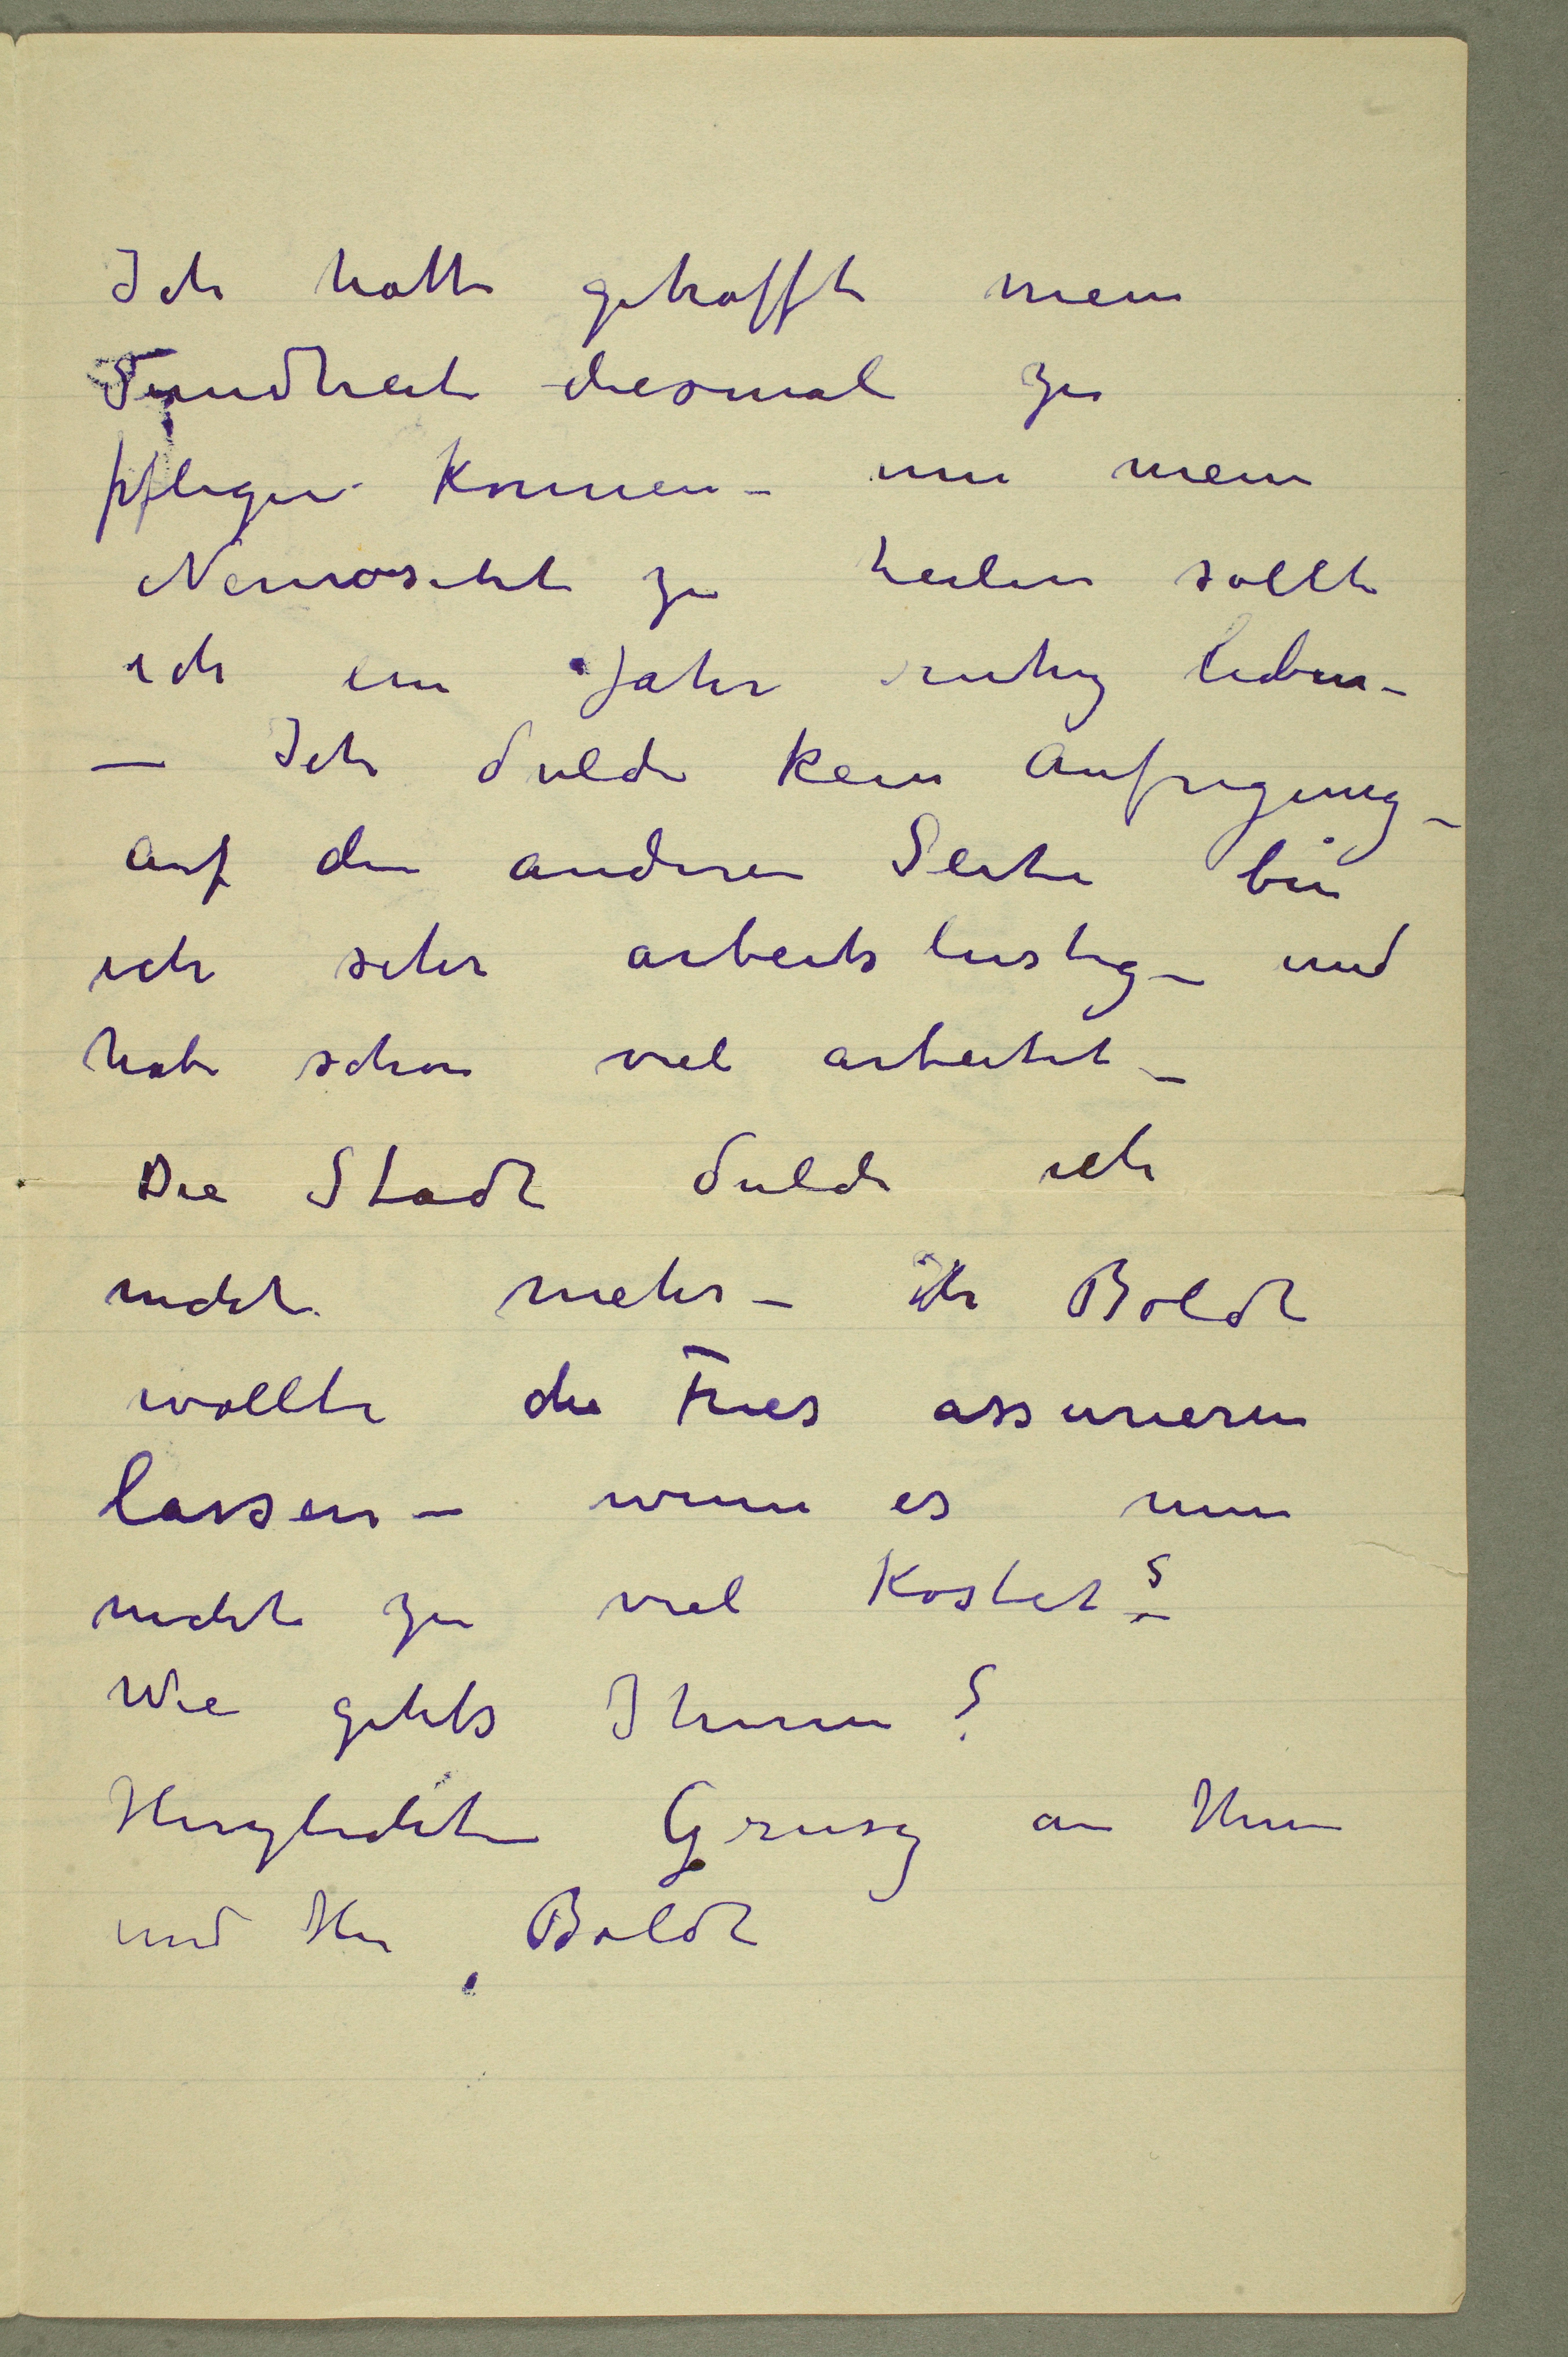 Ich hatte gehofft mein
Sundheit diesmal zu
pflegen können – um mein
Nervosität zu heilen sollte
ich ein Jahr ruhig leben –
– Ich dulde kein Aufregung –
auf den anderen Seite bin
ich sehr arbeitslustig – und
habe schon viel arbeitet –
Die Stadt dulde ich
nicht mehr – Hr Boldt
wollte die Fries assurieren
lassen – wenn es nun
nicht zu viel kostet?
Wie gehts Ihnen?
Herzlichten Grusz an Ihnen
und Hr Boldt